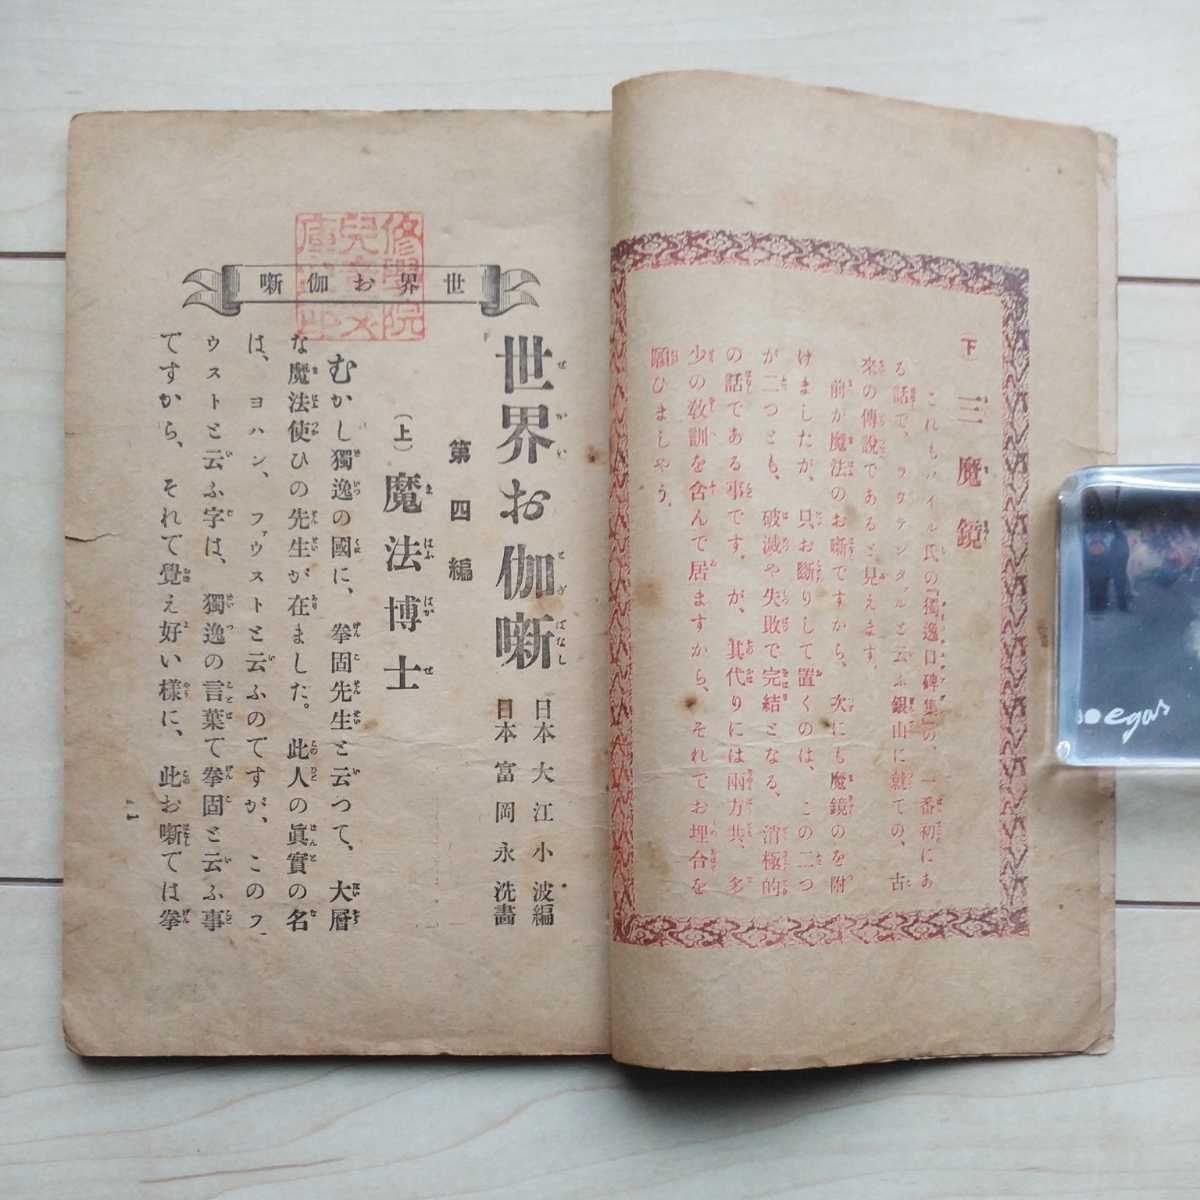 下 三魔鏡
これもハイル氏の『獨逸口碑集』の、一番初にあ
る話で、ラウテンタァルと云ふ銀山に就ての、古
來の傳說であると見えます。
前が魔法のお噺ですから、次にも魔鏡のを附
けましたが、只お斷りして置くのは、この二つ
が二つとも、破滅や失敗で完結となる、消極的
の話である事です。が、其代りには兩方共、多
少の敎訓を含んで居ますから、それでお埋合を
願ひましやう。
世界お伽噺
世界お伽噺
日本 大江小波編
日本 富岡永洗畵
第四編
(上) 魔法博士
むかし獨逸の國に、拳固先生と云つて、大層
な魔法使ひの先生が在ました。此人の眞實の名
は、ヨハン、ファウストと云ふのですが、このファ
ウストと云ふ字は、獨逸の言葉で拳固と云ふ事
ですから、それで覺え好い樣に、此お噺では拳
一
segas